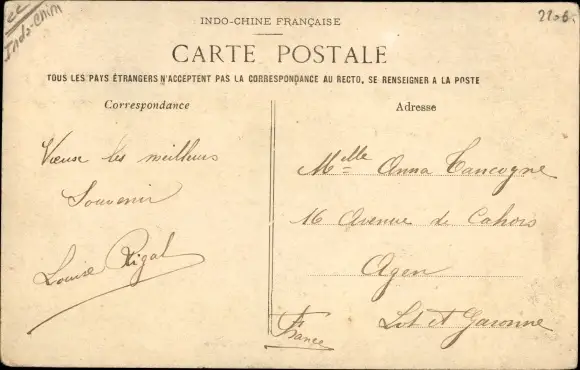 Indo-Chin
22.06.
INDO-CHINE FRANÇAISE
CARTE POSTALE
TOUS LES PAYS ÉTRANGERS N'ACCEPTENT PAS LA CORRESPONDANCE AU RECTO, SE RENSEIGNER A LA POSTE
Correspondance
Vœux les meilleurs
Souvenir
Louise Rigal
Adresse
Melle Anna Tancogne
16 Avenue de Cahors
Agen
Lot et Garonne
France